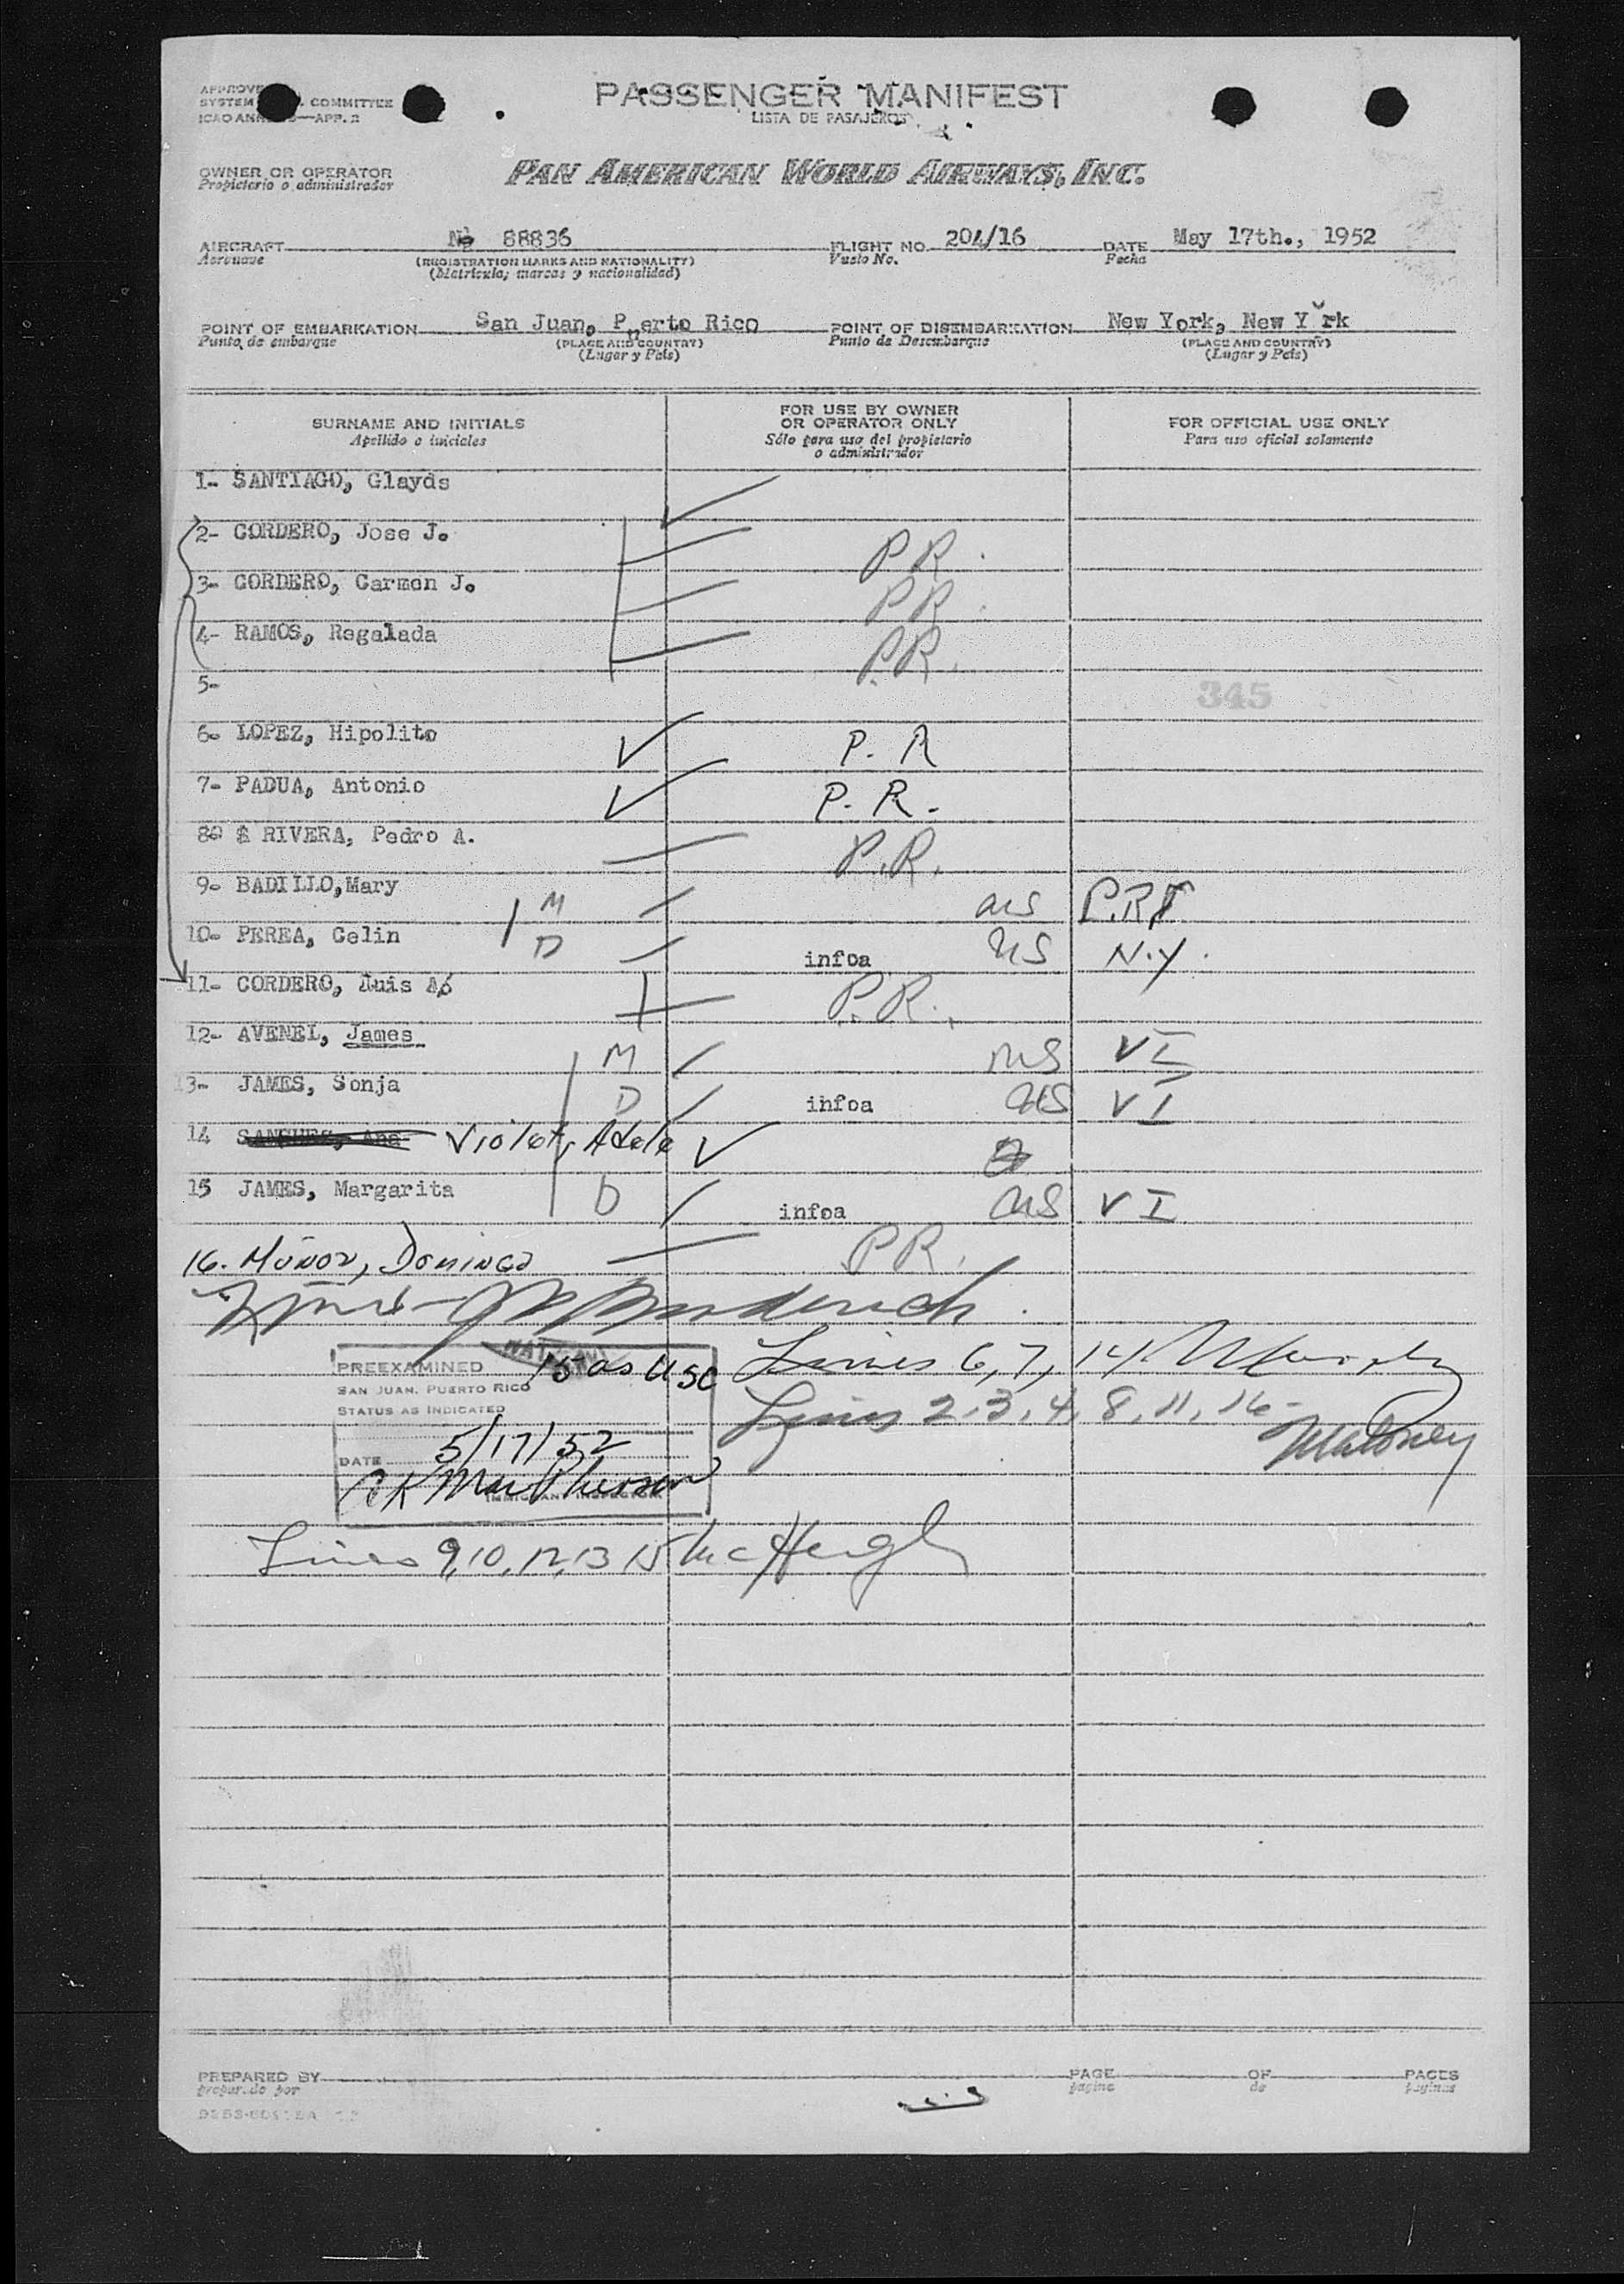 PASSENGER MANIFEST
LISTA DE PASAJEROS
SYSTEM COMMITTEE
ICAO —APP. 2
OWNER OR OPERATOR
Propietario o administrador
PAN AMERICAN WORLD AIRWAYS, INC.
AIRCRAFT 88836 FLIGHT NO. 204/16 DATE May 17th., 1952
Aeronave (REGISTRATION MARKS AND NATIONALITY) Vuelo No. Fecha
(Matrícula, marcas y nacionalidad)
POINT OF EMBARKATION San Juan, Puerto Rico POINT OF DISEMBARKATION New York, New Y rk
Punto de embarque (PLACE AND COUNTRY) Punto de Desembarque (PLACE AND COUNTRY)
(Lugar y País) (Lugar y País)
SURNAME AND INITIALS FOR USE BY OWNER OR OPERATOR ONLY FOR OFFICIAL USE ONLY
Apellido e iniciales Sólo para uso del propietario o administrador Para uso oficial solamente
1- SANTIAGO, Glayds
2- CORDERO, Jose J. P R.
3- CORDERO, Carmen J. P R.
4- RAMOS, Regalada P.R.
5-
345
6- LOPEZ, Hipolito P. R
7- PADUA, Antonio P. R.
8 RIVERA, Pedro A. P.R.
9- BADILLO,Mary M US P.R
10- PEREA, Celin D infoa US N.Y.
11- CORDERO, Luis A P.R.
12- AVENEL, James M US VI
13- JAMES, Sonja D infoa US VI
14 SANCHES, Ana Violet, Adele
15 JAMES, Margarita D infoa US VI
16. MUNOZ, DOMINGO P.R.
PREEXAMINED 15 as USC Lines 6,7,14.
SAN JUAN, PUERTO RICO
STATUS AS INDICATED Lines 2,3,4,8,11,16- Maloney
DATE 5/17/52
MacPherson
IMMIGRANT INSPECTOR
Lines 9,10,12,13 15 McHugh
PREPARED BY PAGE OF PAGES
por página de páginas